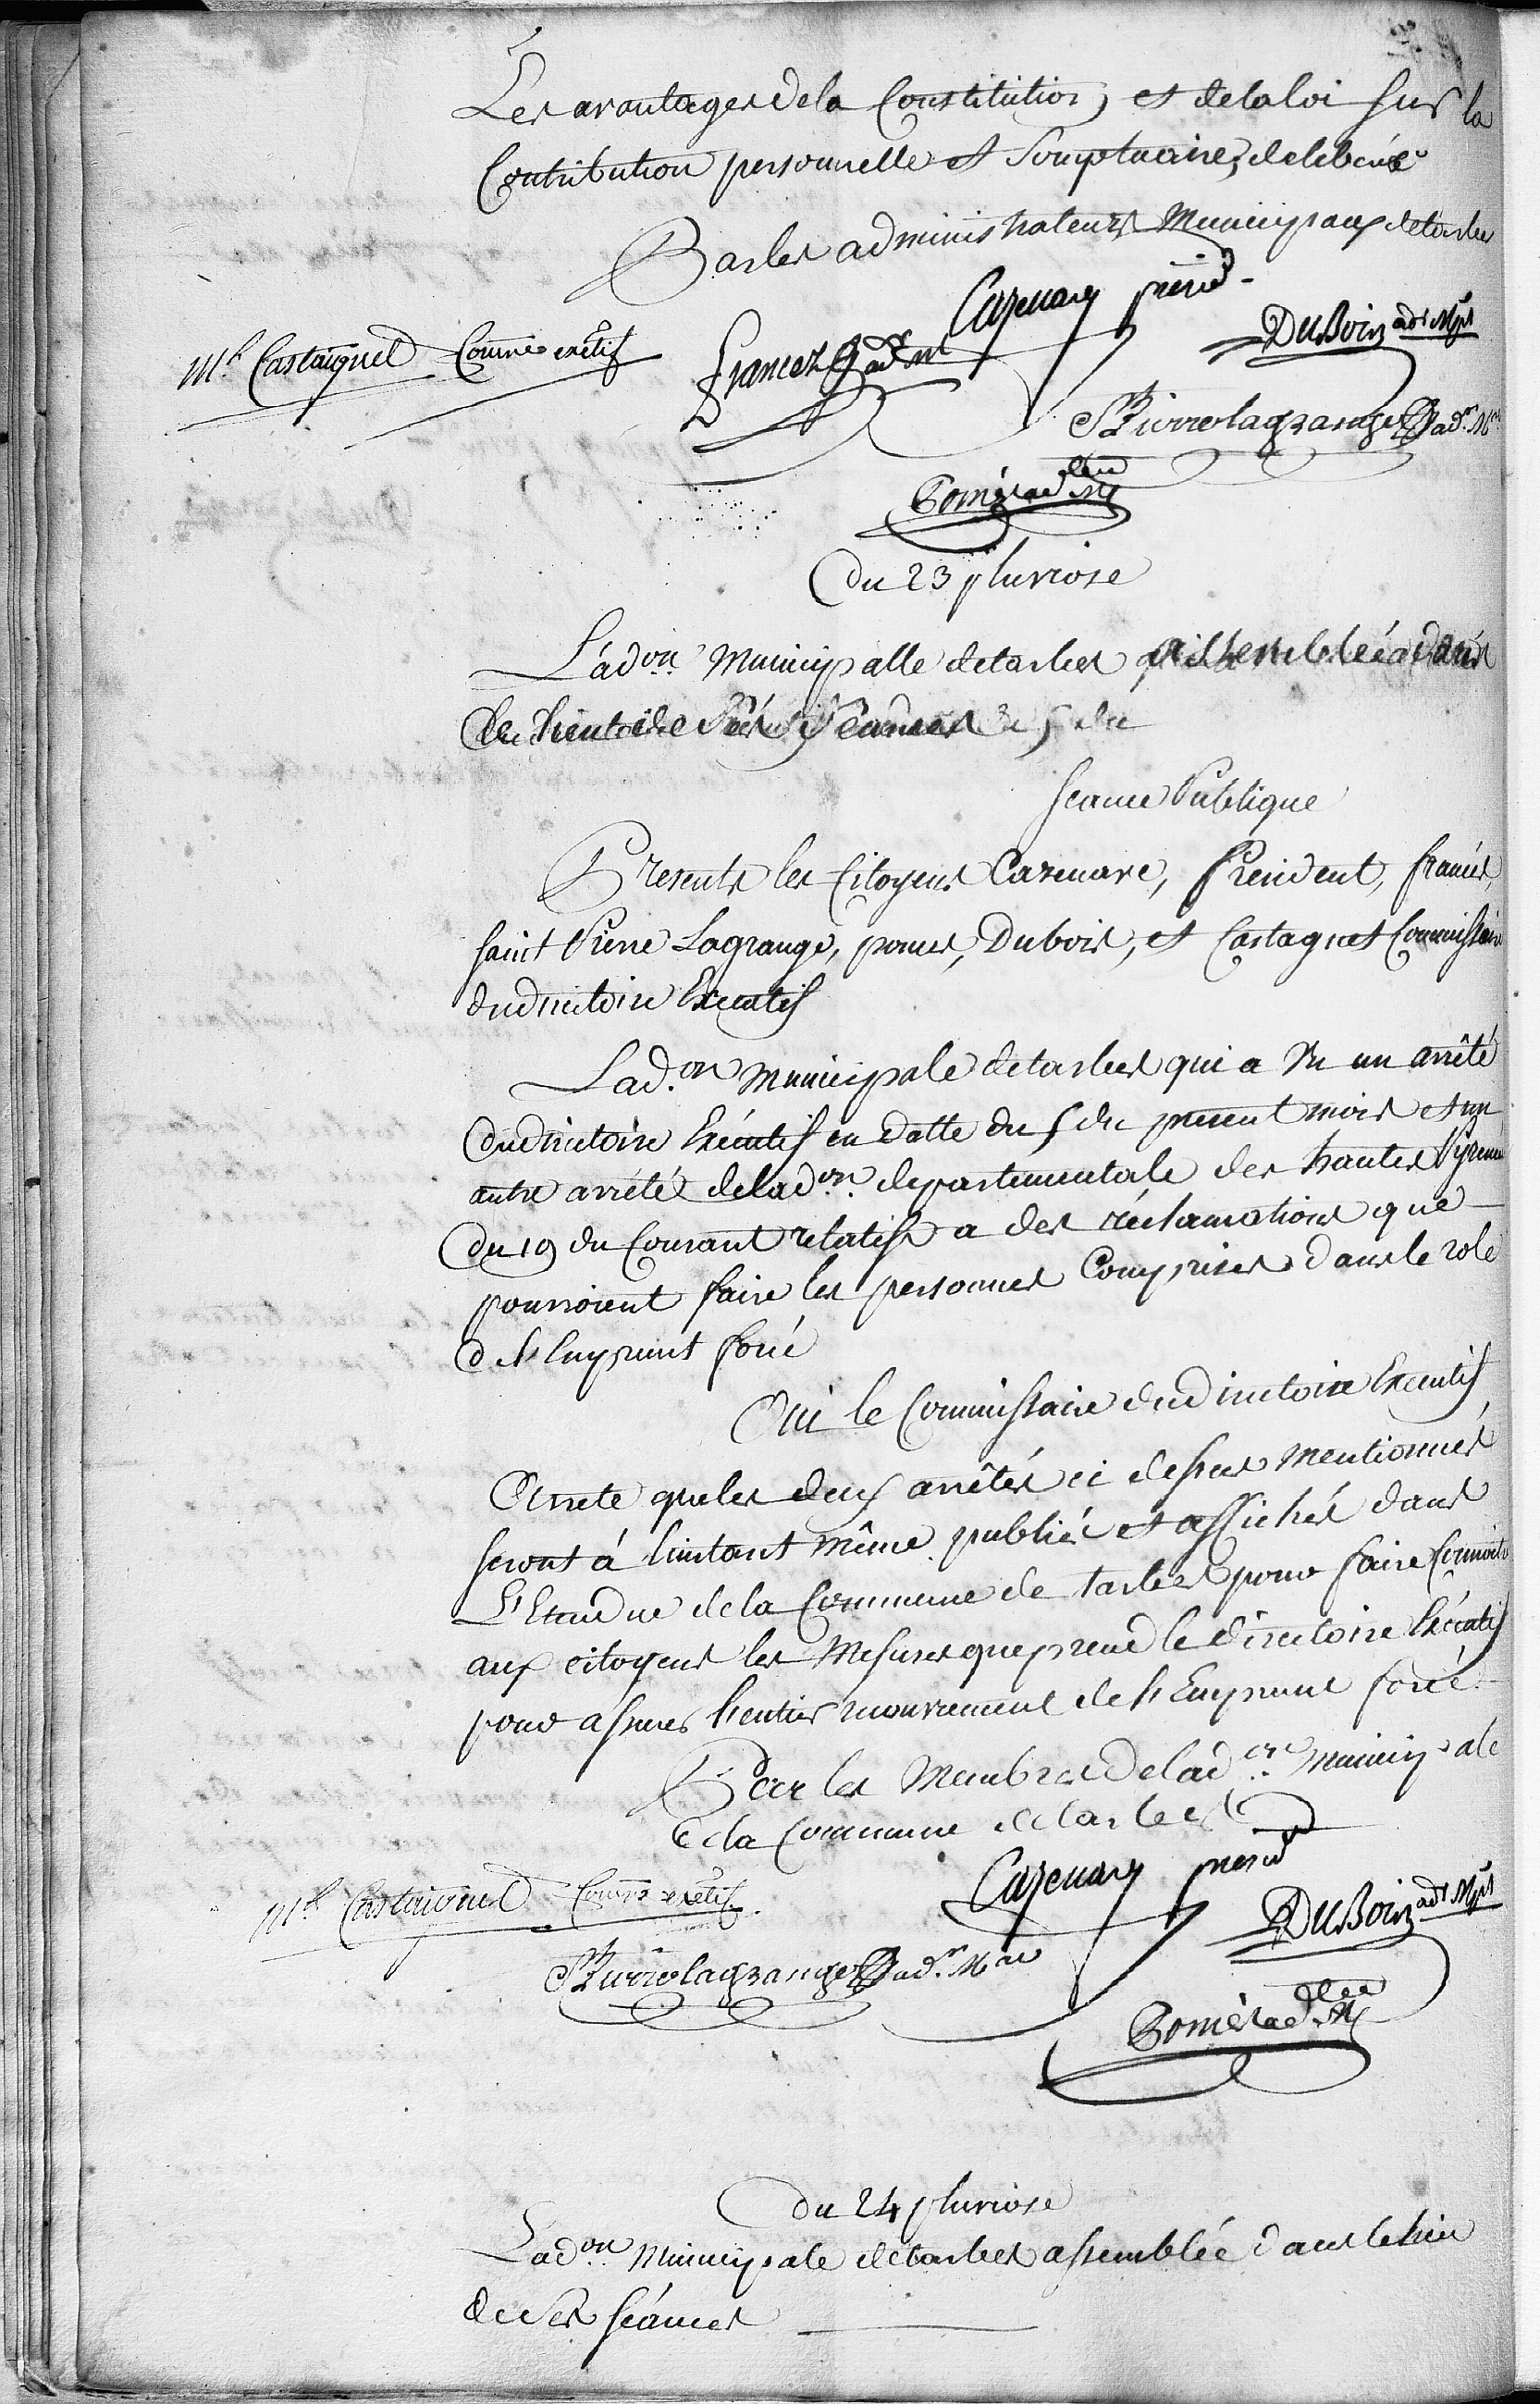 Les avantages de la Constitution, et de la loi sur la
Contribution personnelle et Somptuaire, deliberé
Par les administrateurs Municipaux de tarbes
Cazenave présid
DuBois adr Mpl
Ml Castaignet Comre exétif
francez adr ml
St Pierrelagrange adr. Mal
Pomès adr Mal
du 23 pluviose
L'adon. Municipalle de tarbes assemblée dans
le lieu de ses Séances
seance Publique
Presents les Citoyens Cazenave, President, francés,
saint Pierre Lagrange, pomes, Dubois, et Castagnet Commissaire
du directoire Executif
L'ad.on Municipale de tarbes qui a Vu un arrêté
du directoire Exécutif en datte du 5 du present mois et un
autre arrété de l'ad.on departementale des hautes Pyrenées
du 19 du Courant relatifs a des réclamations que
pourroient faire les personnes Comprises dans le role
de l'Emprunt forcé
Oui le Commissaire du directoire Executif
Arrete que les deux arrêtés ci dessus mentionnés
seront à l'instant même publiés et affichés dans
L'Etendue de la Commune de tarbes pour faire Connoitre
aux citoyens les Mesures que prend le directoire Exécutif
pour assurer l'entier mouvement de l'Emprunt forcé.
Par les Membres de l'ad.on Municipale
de la Commune de tarbes
Cazenave présid
Ml Castaignet Comre exétif.
DuBois adr Mpl
St Pierrelagrange adr. Mal
Pomès adr Mal
du 24 pluviose
L'adon. Municipale de tarbes assemblée dans le lieu
de ses séances